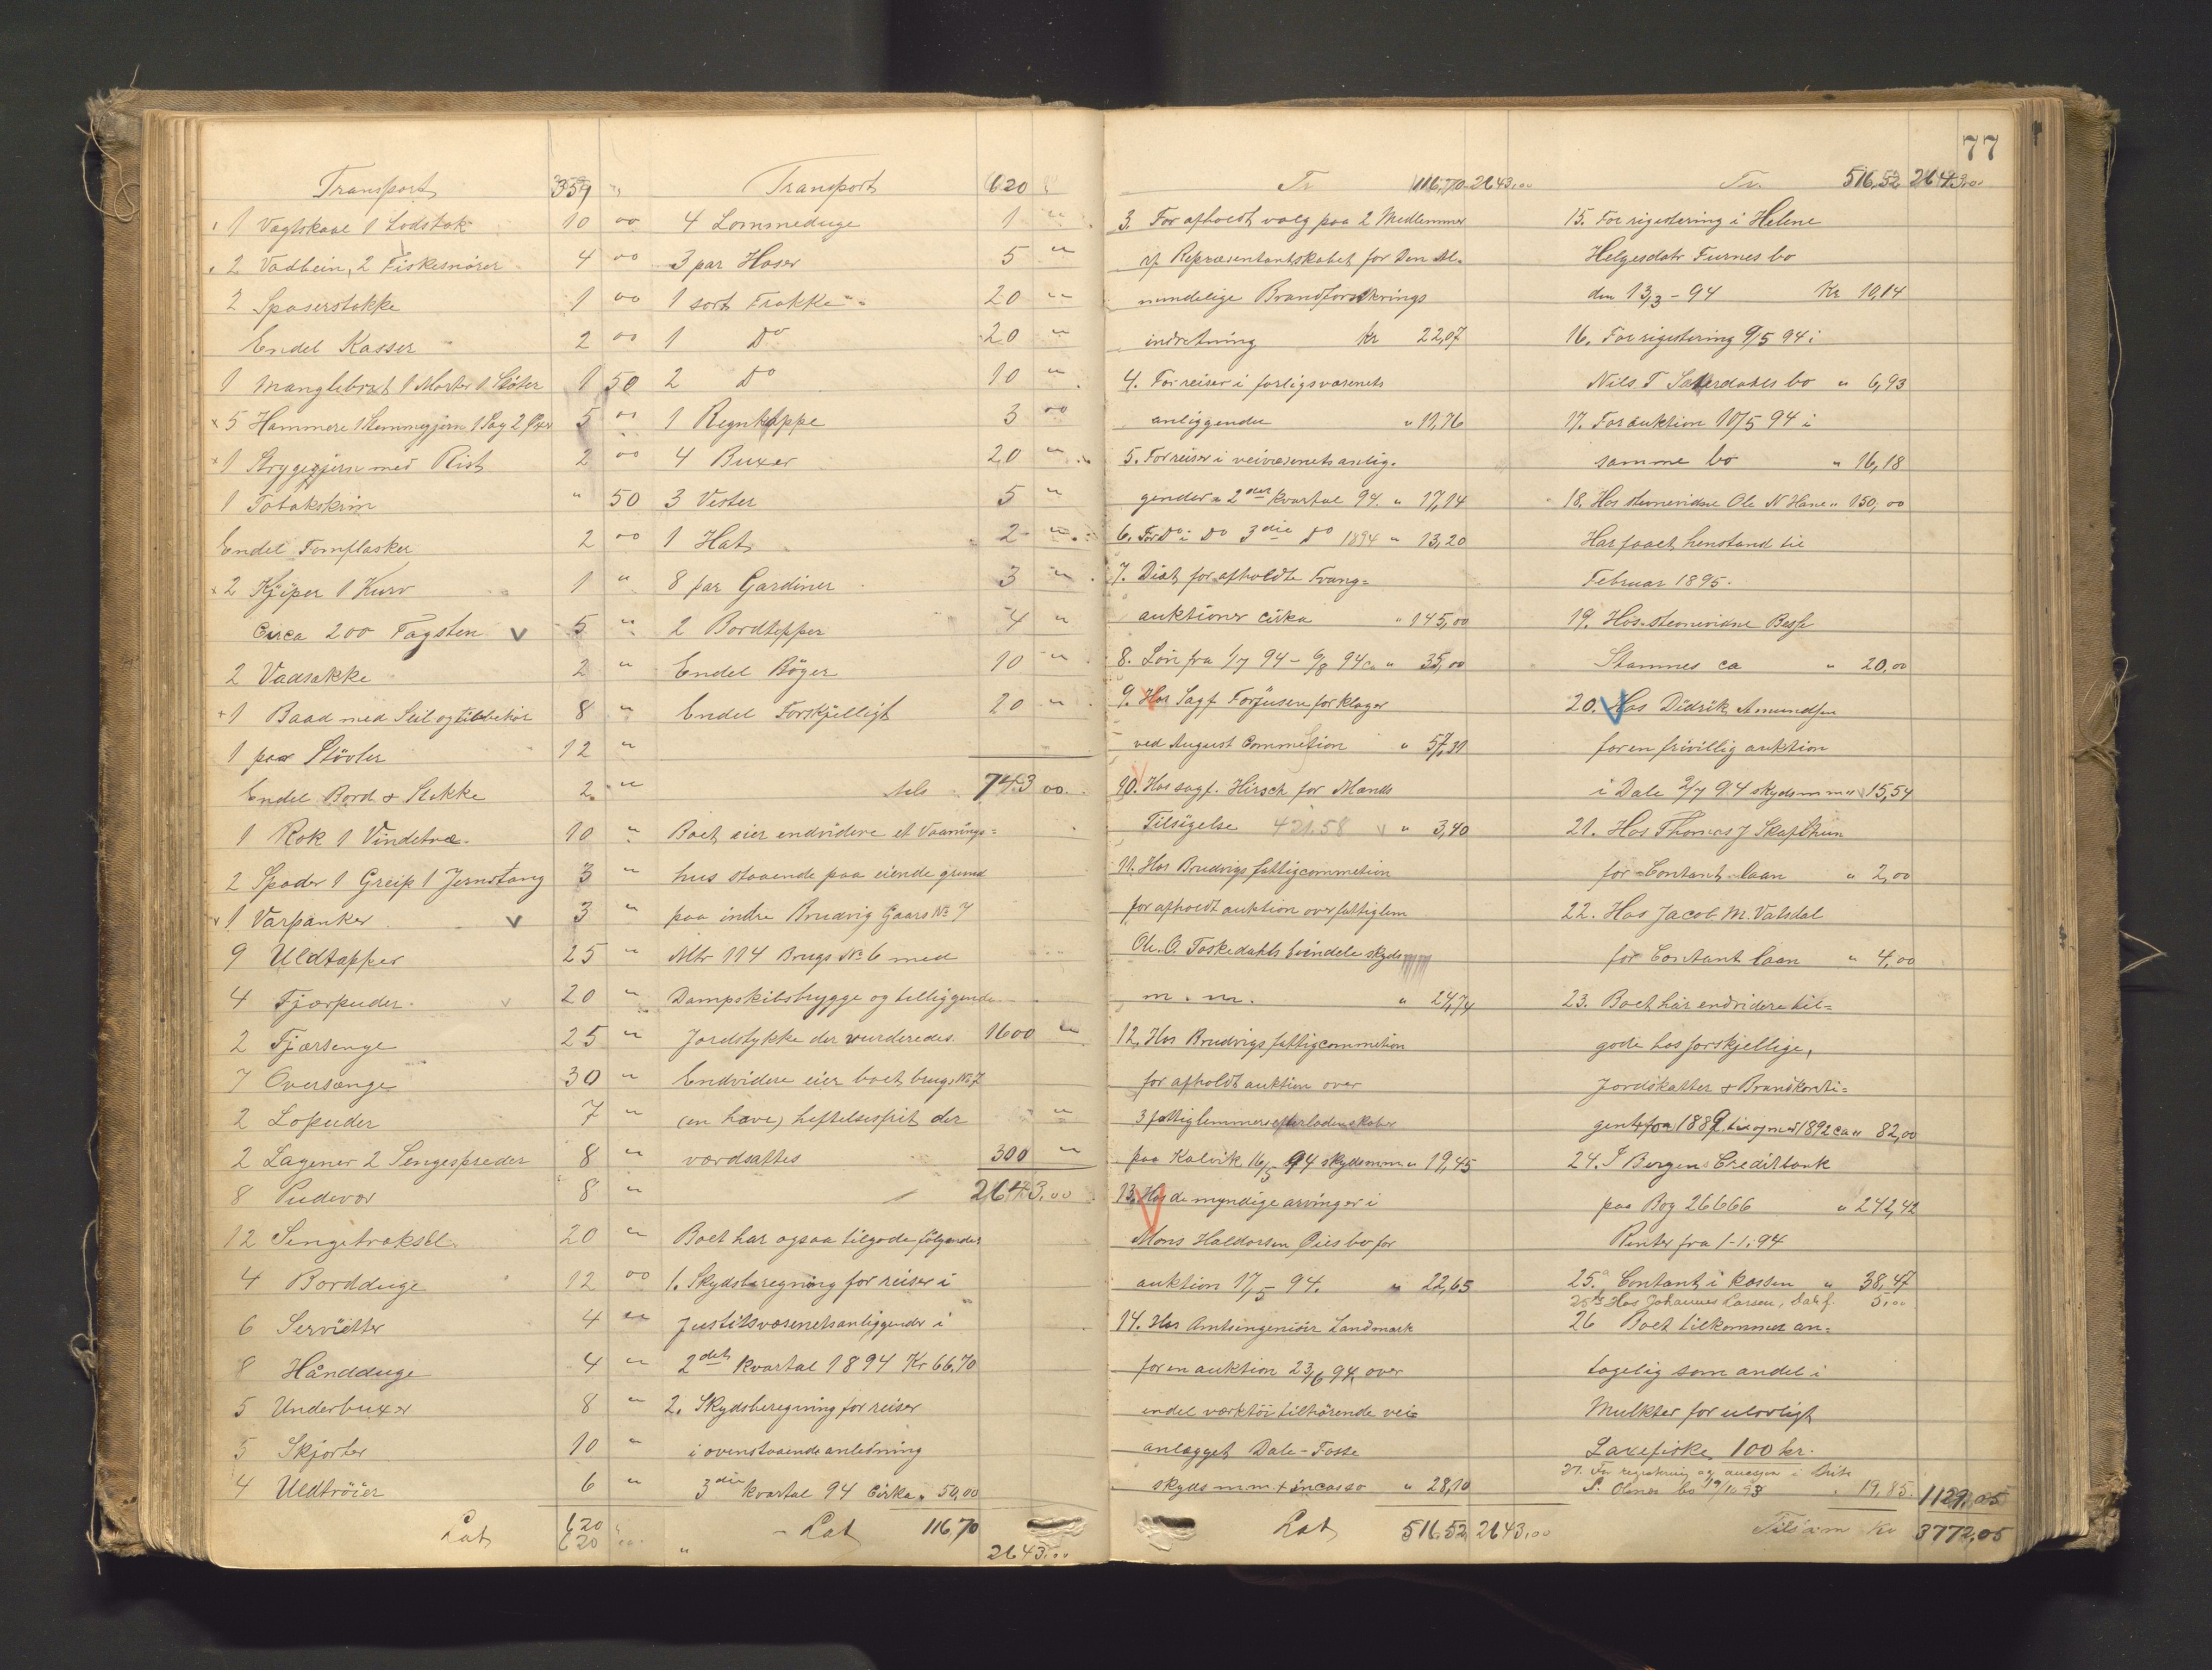 Transport 359 "
1 Vægtskaal 1 Lodstok 10 00
2 Vadbein, 2 Fiskesnörer 4 00
2 Spaserstokke 1 00
Endel Kasser 2 00
1 Manglebræt 1 Morter 1 Støter 1 50
5 Hammere 1 Stemmejern 1 Sag 2 Øxer 5 00
1 Strygejern med Rist 2 00
1 Tobakskrin " 50
Endel Tomflasker 2 00
2 Kjiper 1 Kurv 1 "
Circa 200 Tagsten 5 "
2 Vadsække 2 "
1 Baad med Seil og tilbehör 8 "
1 par Stövler 12 "
Endel Bord & Stokke 2 "
1 Rok 1 Vindetræ. 10 "
2 Spader 1 Greip 1 Jernstang 3 "
1 Varpanker 3 "
9 Uldtæpper 25 "
4 Fjærpuder. 20 "
2 Fjærsenge 25 "
7 Oversænge 30 "
2 Lopuder 7 "
2 Lagener 2 Sengespreder 8 "
8 Pudevor 8 "
12 Sengetræksel 20 "
4 Bordduge 12 00
6 Servietter 4 "
8 Håndduge 4 "
5 Underbuxer 8 "
5 Skjorter 10 "
4 Uldtröier 6 "
Lat 620 "
620
Transport 620 "
4 Lommeduge 1 "
3 par Hoser 5 "
1 sort Frakke 20 "
1 Do 20 "
2 Do 10 "
1 Regnkappe 3 00
4 Buxer 20 "
3 Vester 5 "
1 Hat 2 "
8 par Gardiner 3 "
2 Bordtepper 4 "
Endel Böger 10 "
Endel Forskjelligt 20 "
743 00
Boet eier endvidere et Vaanings=
hus staaende paa eiende grund
paa indre Brudvig Gaards No 7
Mtr 114 Brugs No 6 med
Dampskibsbrygge og tilliggende
Jordstykke der vurderedes. 1600 "
Endvidere eier boet brugs No 7
(en have) heftelsesfrit der "
værdsattes 300 "
2643,00
Boet har ogsaa tilgode fölgende
1. Skydsberegning for reiser i
Justitsvæsenetsanliggender i
2det kvartal 1894 Kr 66,70
2. Skydsberegning for reiser
i ovenstaaende anledning
3die kvartal 94 Cirka " 50,00
" Lat 116,70
2643,00
Tr 116,70 2643,00
3. For afholdt valg paa 2 Medlemmer
af Repræsentantskabet for Den Al=
mindelige Brandforsikrings
indretning kr 22,07
4. For reiser i forligsvæsenets
anliggender " 11,76
5. For reiser i veivæsenets anlig=
gender 2det kvartal 94. " 17,14
6. For Do i Do 3die Do 1894 " 13,20
7. Diæt for afholdte Tvang=
auktioner cirka " 145,00
8. Lön fra 1/7 94 – 6/8 94 ca " 35,00
9. Hos Sagf. Torjusen for klager
ved August Commetion " 57,31
10. Hos sagf. Hirsch for Mænds
Tilsigelse 421.58 " 3,40
11. Hos Brudvigs fattigcommetion
for afholdt auktion over fattiglem
Ole. O. Toskedahls Eiendele skyds
m. m. " 24,74
12. Hos Brudvigs fattigcommetion
for afholdt auktion over
3 fattiglemmers efterladenskaber
paa Kalvik 16/5 94 skyds m m " 19,45
13. Hos de myndige arvinger i
Mons Haldorsen Öies bo for
auktion 17/5 – 94. " 22,65
14. Hos Amtsingeniör Landmark
for en auktion 23/6 94 over
endel værktöi tilhörende vei=
anlægget Dale – Fosse
skyds m m + incasso " 28,10
Lat 516,52 2643,00
77
Tr. 516,52 2643,00
15. For rigistering i Helene
Helgesdatr Furnes bo
den 13/3 – 94 Kr 10,14
16. For rigistering 9/5 94 i
Nils T Sæterdahls bo " 6,93
17. For auktion 10/5 94 i
samme bo " 16,18
18. Hos Ole N Hane " 150,00
Har faaet henstand til
Februar 1895.
19. Hos Besse
Stamnes ca " 20,00
20. Hos Didrik Amundsen
for en frivillig auktion
i Dale 2/7 94 skyds m m " 15,54
21. Hos Thomas J Skafthun
for Contant laan " 2,00
22. Hos Jacob M. Vatsdal
for Contant laan " 4,00
23. Boet har endvidere til=
gode hos forskjellige,
Jordskatter & Brandkonti=
gent fra 1889 til og med 1892 ca " 82,00
24. I Bergens Creditbank
paa Bog 26666 " 242,42
Renter fra 1-1-94
25.a Contant i kassen " 38,47
25b Hos Johannes Larsen, Dale f. 5,00
26 Boet tilkommer an=
tagelig som andel i
Mulkter for ulovligt
Laxefiske 100 kr.
27. For registrering og auksjon i Brite
S. Olsnes bo 19/10 93 " 19,85. 1129,05
Tilsam Kr 3772,05